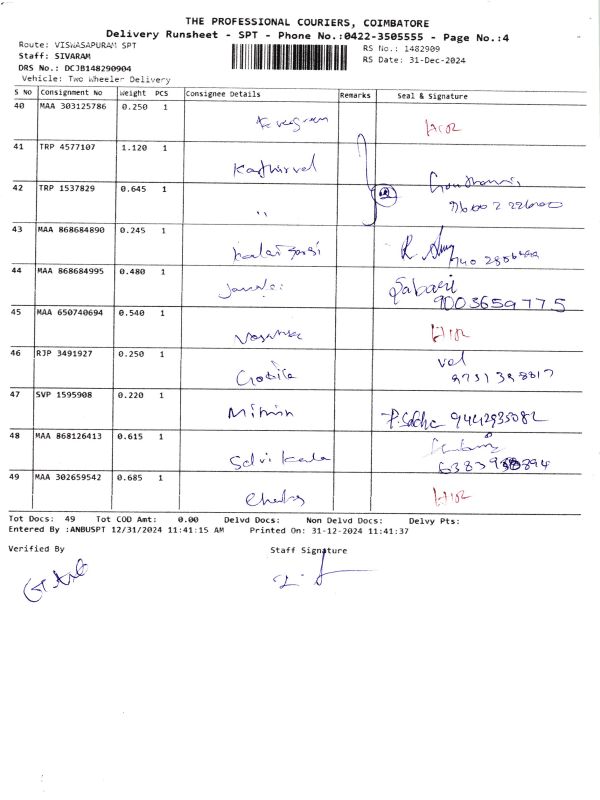 THE PROFESSIONAL COURIERS, COIMBATORE
Delivery Runsheet - SPT - Phone No.:0422-3505555 - Page No.:4
Route: VISWASAPURAM SPT
RS No.: 1482909
Staff: SIVARAM
RS Date: 31-Dec-2024
DRS No.: DCJB148290904
Vehicle: Two Wheeler Delivery
S NO Consignment No Weight PCS Consignee Details Remarks Seal & Signature
40 MAA 303125786 0.250 1
41 TRP 4577107 1.120 1 Kathirvel
42 TRP 1537829 0.645 1 ,,
43 MAA 868684890 0.245 1
44 MAA 868684995 0.480 1 Sabari
9003659775
45 MAA 650740694 0.540 1
46 RJP 3491927 0.250 1 vel
47 SVP 1595908 0.220 1 Mithin 9442935082
48 MAA 868126413 0.615 1 Selvi kala
49 MAA 302659542 0.685 1
Tot Docs: 49 Tot COD Amt: 0.00 Delvd Docs: Non Delvd Docs: Delvy Pts:
Entered By :ANBUSPT 12/31/2024 11:41:15 AM Printed On: 31-12-2024 11:41:37
Verified By Staff Signature